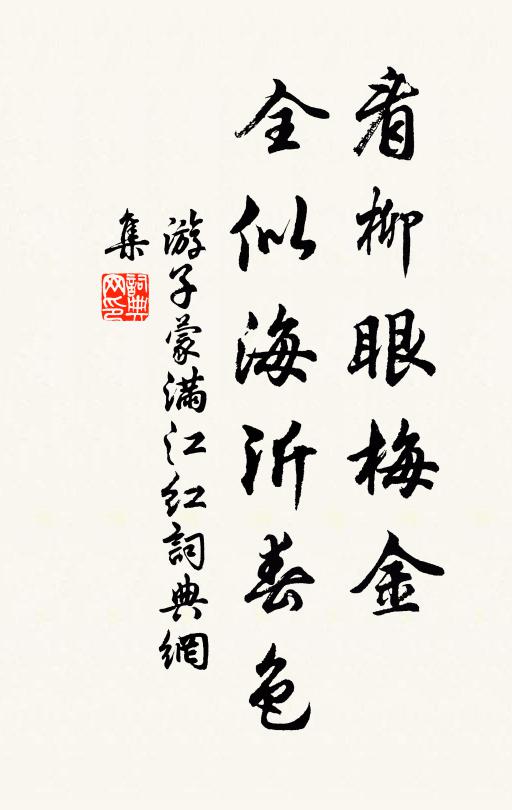 看柳眼梅金
全似海沂春色
游子蒙满江红詞典網
集
詞典网印